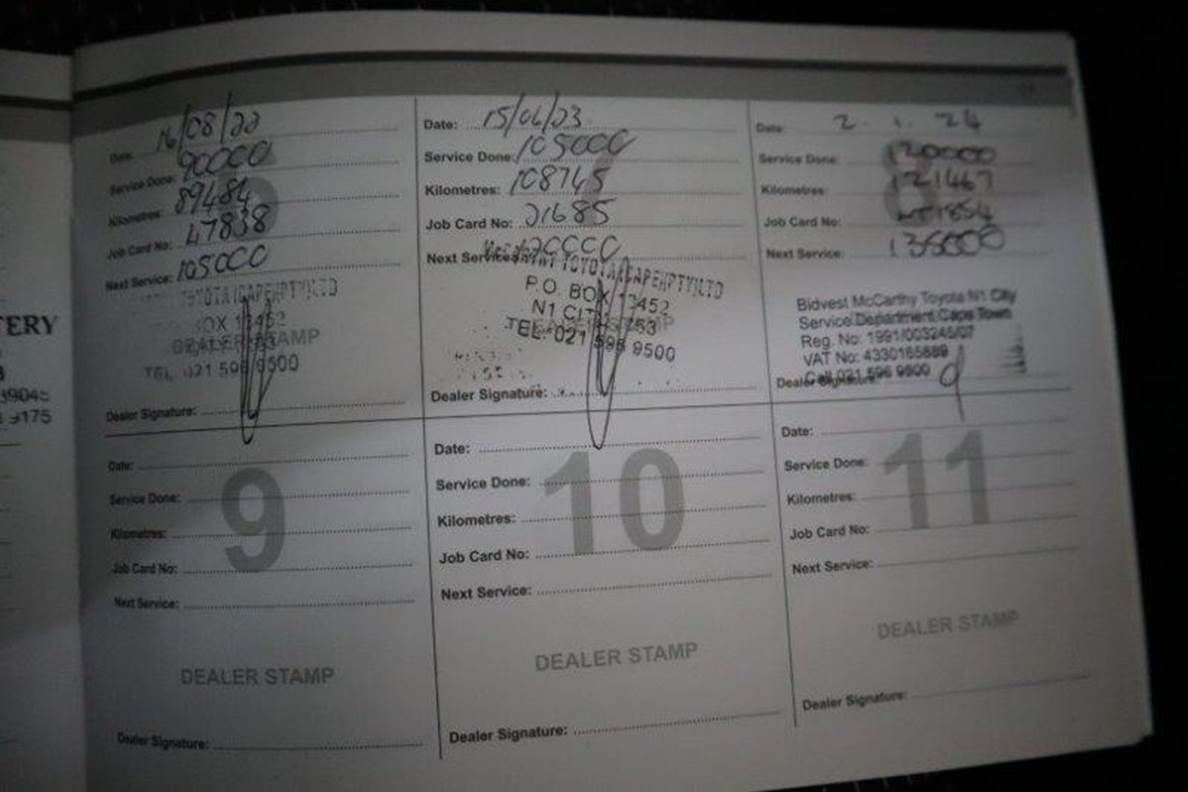 TERY
9175
Date: 16/08/22
Service Done: 90000
Kilometres: 89484
Job Card No: 47838
Next Service: 105000
TOYOTA (CAPE)(PTY)LTD
BOX 13452
DEALER STAMP
TEL 021 596 9500
Dealer Signature:
Date: 15/06/23
Service Done: 105000
Kilometres: 108745
Job Card No: 21685
Next Service: 120000
TOYOTA (CAPE)(PTY)LTD
P.O. BOX 13452
N1 CITY
TEL: 021 596 9500
Dealer Signature:
Date: 2. 1. 24
Service Done: 120000
Kilometres: 121467
Job Card No:
Next Service: 135000
Bidvest McCarthy Toyota N1 City
Service Department Cape Town
Reg. No: 1991/003245/07
VAT No: 4330165689
Call 021 596 9500
Dealer Signature:
9
Date:
Service Done:
Kilometres:
Job Card No:
Next Service:
DEALER STAMP
Dealer Signature:
10
Date:
Service Done:
Kilometres:
Job Card No:
Next Service:
DEALER STAMP
Dealer Signature:
11
Date:
Service Done:
Kilometres:
Job Card No:
Next Service:
DEALER STAMP
Dealer Signature: